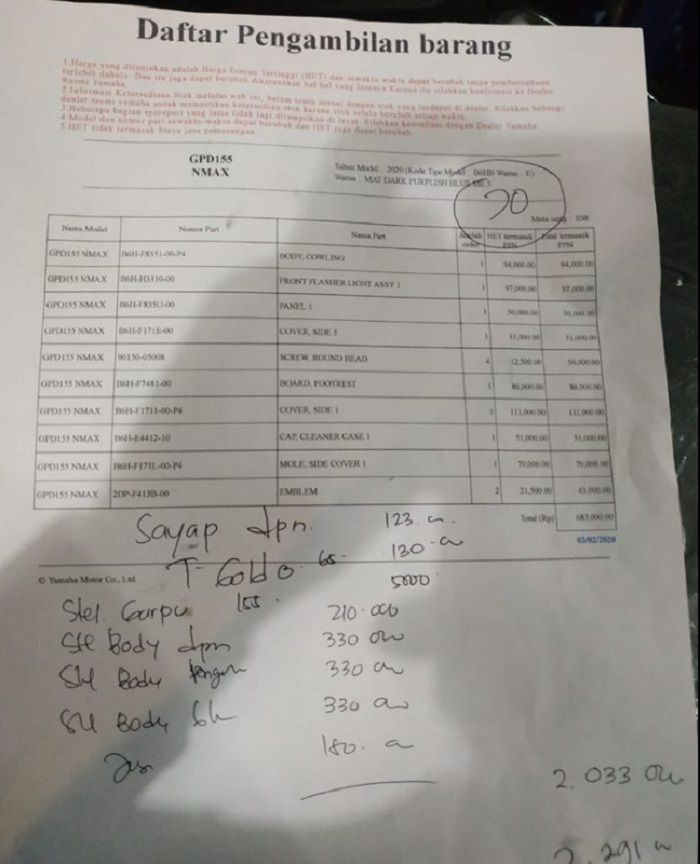 Daftar Pengambilan barang
1.Harga yang ditunjukan adalah Harga Eceran Tertinggi (HET) dan sewaktu waktu dapat berubah tanpa pemberitahuan
terlebih dahulu. Dan ste juga dapat berubah dikarenakan hal hal yang lainnya Karena itu silahkan konfirmasi ke Dealer
Resmi Yamaha.
2.Informasi Ketersediaan stok melalui web ini, belum tentu sesuai dengan stok yang terdapat di dealer. Silahkan hubungi
dealer resmi yamaha untuk memastikan ketersedian stok karena stok selalu berubah setiap waktu.
3.Beberapa bagian sparepart yang lama tidak lagi ditampilkan di layar. Silahkan konsultasi dengan Dealer Yamaha.
4.Model dan nomor part sewaktu-waktu dapat berubah dan HET juga dapat berubah.
5.HET tidak termasuk biaya jasa pemasangan.
GPD155
NMAX
Tahun Model : 2020 (Kode Tipe Model : B6HB Warna : E)
Warna : MAT DARK PURPLISH BLUE
Mata uang IDR
Nama Model Nomor Part Nama Part Jumlah order HET termasuk PPN Total termasuk PPN
GPD155 NMAX B6H-F8351-00-P4 BODY, COWLING 1 94,000.00 94,000.00
GPD155 NMAX B6H-H3310-00 FRONT FLASHER LIGHT ASSY 1 1 97,000.00 97,000.00
GPD155 NMAX PANEL 1 1 50,000.00 50,000.00
GPD155 NMAX B6H-F171E-00 COVER, SIDE 5 1 31,000.00 31,000.00
GPD155 NMAX 90150-05008 SCREW, ROUND HEAD 4 12,500.00 50,000.00
GPD155 NMAX B6H-F7481-00 BOARD, FOOTREST 1 86,000.00 86,000.00
GPD155 NMAX B6H-F1711-00-P4 COVER, SIDE 1 1 111,000.00 111,000.00
GPD155 NMAX B6H-E4412-10 CAP, CLEANER CASE 1 1 51,000.00 51,000.00
GPD155 NMAX B6H-F171L-00-P4 MOLE, SIDE COVER 1 1 70,000.00 70,000.00
GPD155 NMAX 2DP-F413B-00 EMBLEM 2 21,500.00 43,000.00
Total (Rp) 683,000.00
03/02/2020
Sayap dpn. 123.
130.
© Yamaha Motor Co., Ltd.
65. 5000
Stel. Garpu 155 210.000
Stel Body dpn 330
Stel Body tengah 330
Stel Body 330
180.
2.033
2.291